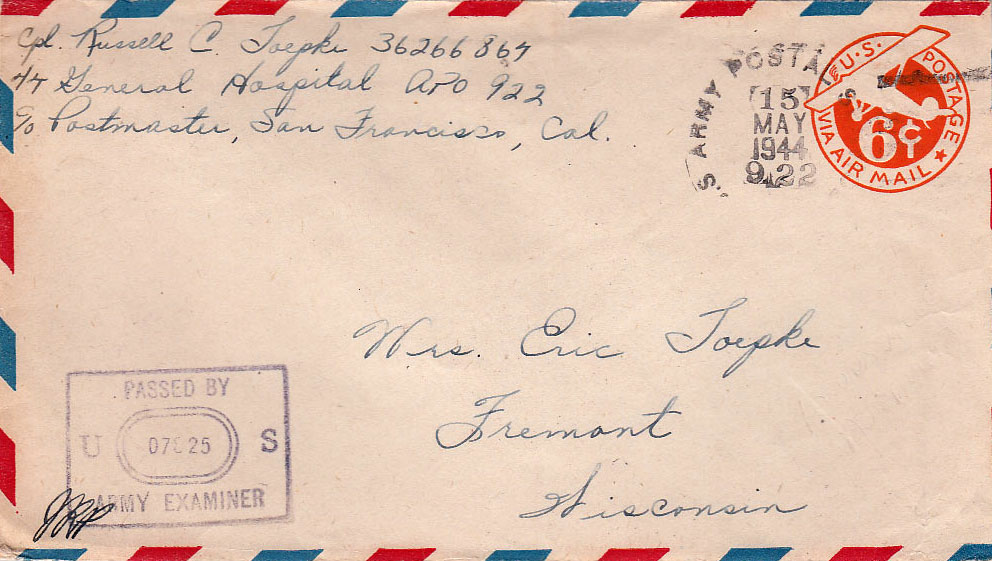 Cpl. Russell C. Toepke 36266864
44 General Hospital APO 922
c/o Postmaster, San Francisco, Cal.
S ARMY POSTA
15
MAY
1944
922
U.S. POSTAGE
6¢
VIA AIR MAIL
Mrs. Eric Toepke
Fremont
Wisconsin
PASSED BY
U S
ARMY EXAMINER